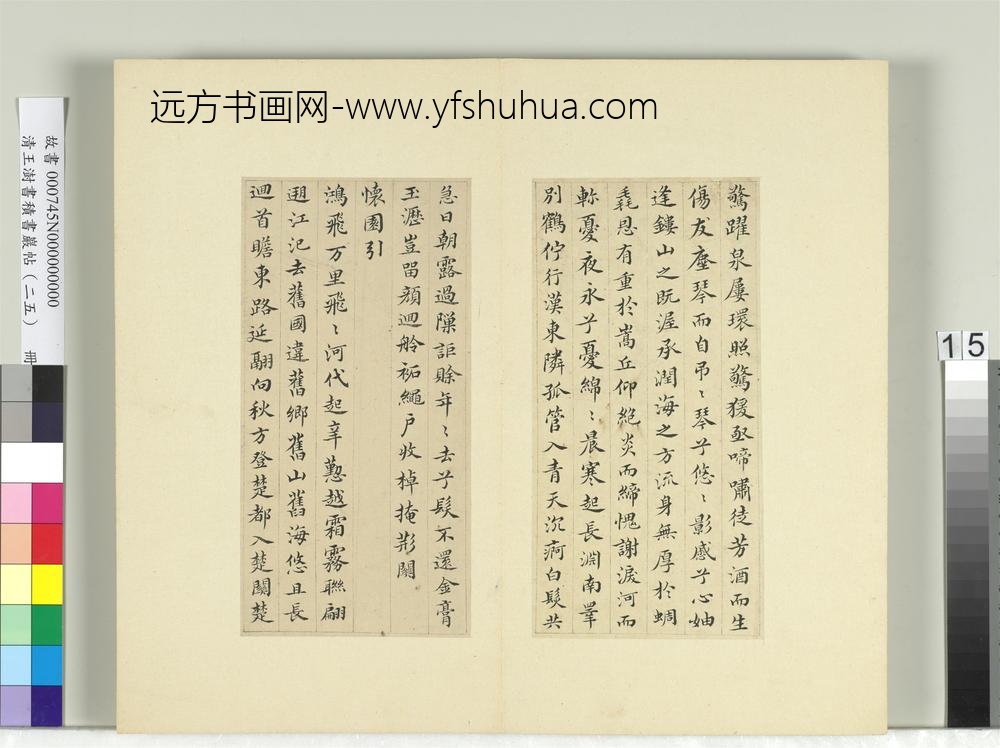 远方书画网-www.yfshuhua.com
故書 000745N000000000
清王澍書積書巖帖（二五） 冊
15
驚躍泉屢環照驚猨亟啼嘯徒芳酒而生
傷友塵琴而自吊〻琴兮悠〻影感兮心妯
逢鏤山之既渥承潤海之方流身無厚於蜩
毳恩有重於嵩丘仰絕炎而締愧謝淚河而
軫憂夜永兮憂綿〻晨寒起長淵南睪
別鶴佇行漢東隣孤管入青天沉痾白髮共
急日朝露過隟詎賒年〻去兮髮不還金膏
玉瀝豈畱顏迴舲祏繩戶收棹掩荊關
懷園引
鴻飛万里飛〻河代起辛懃越霜霧聯翩
遡江汜去舊國違舊鄉舊山舊海悠且長
迴首瞻東路延翮向秋方登楚都入楚關楚